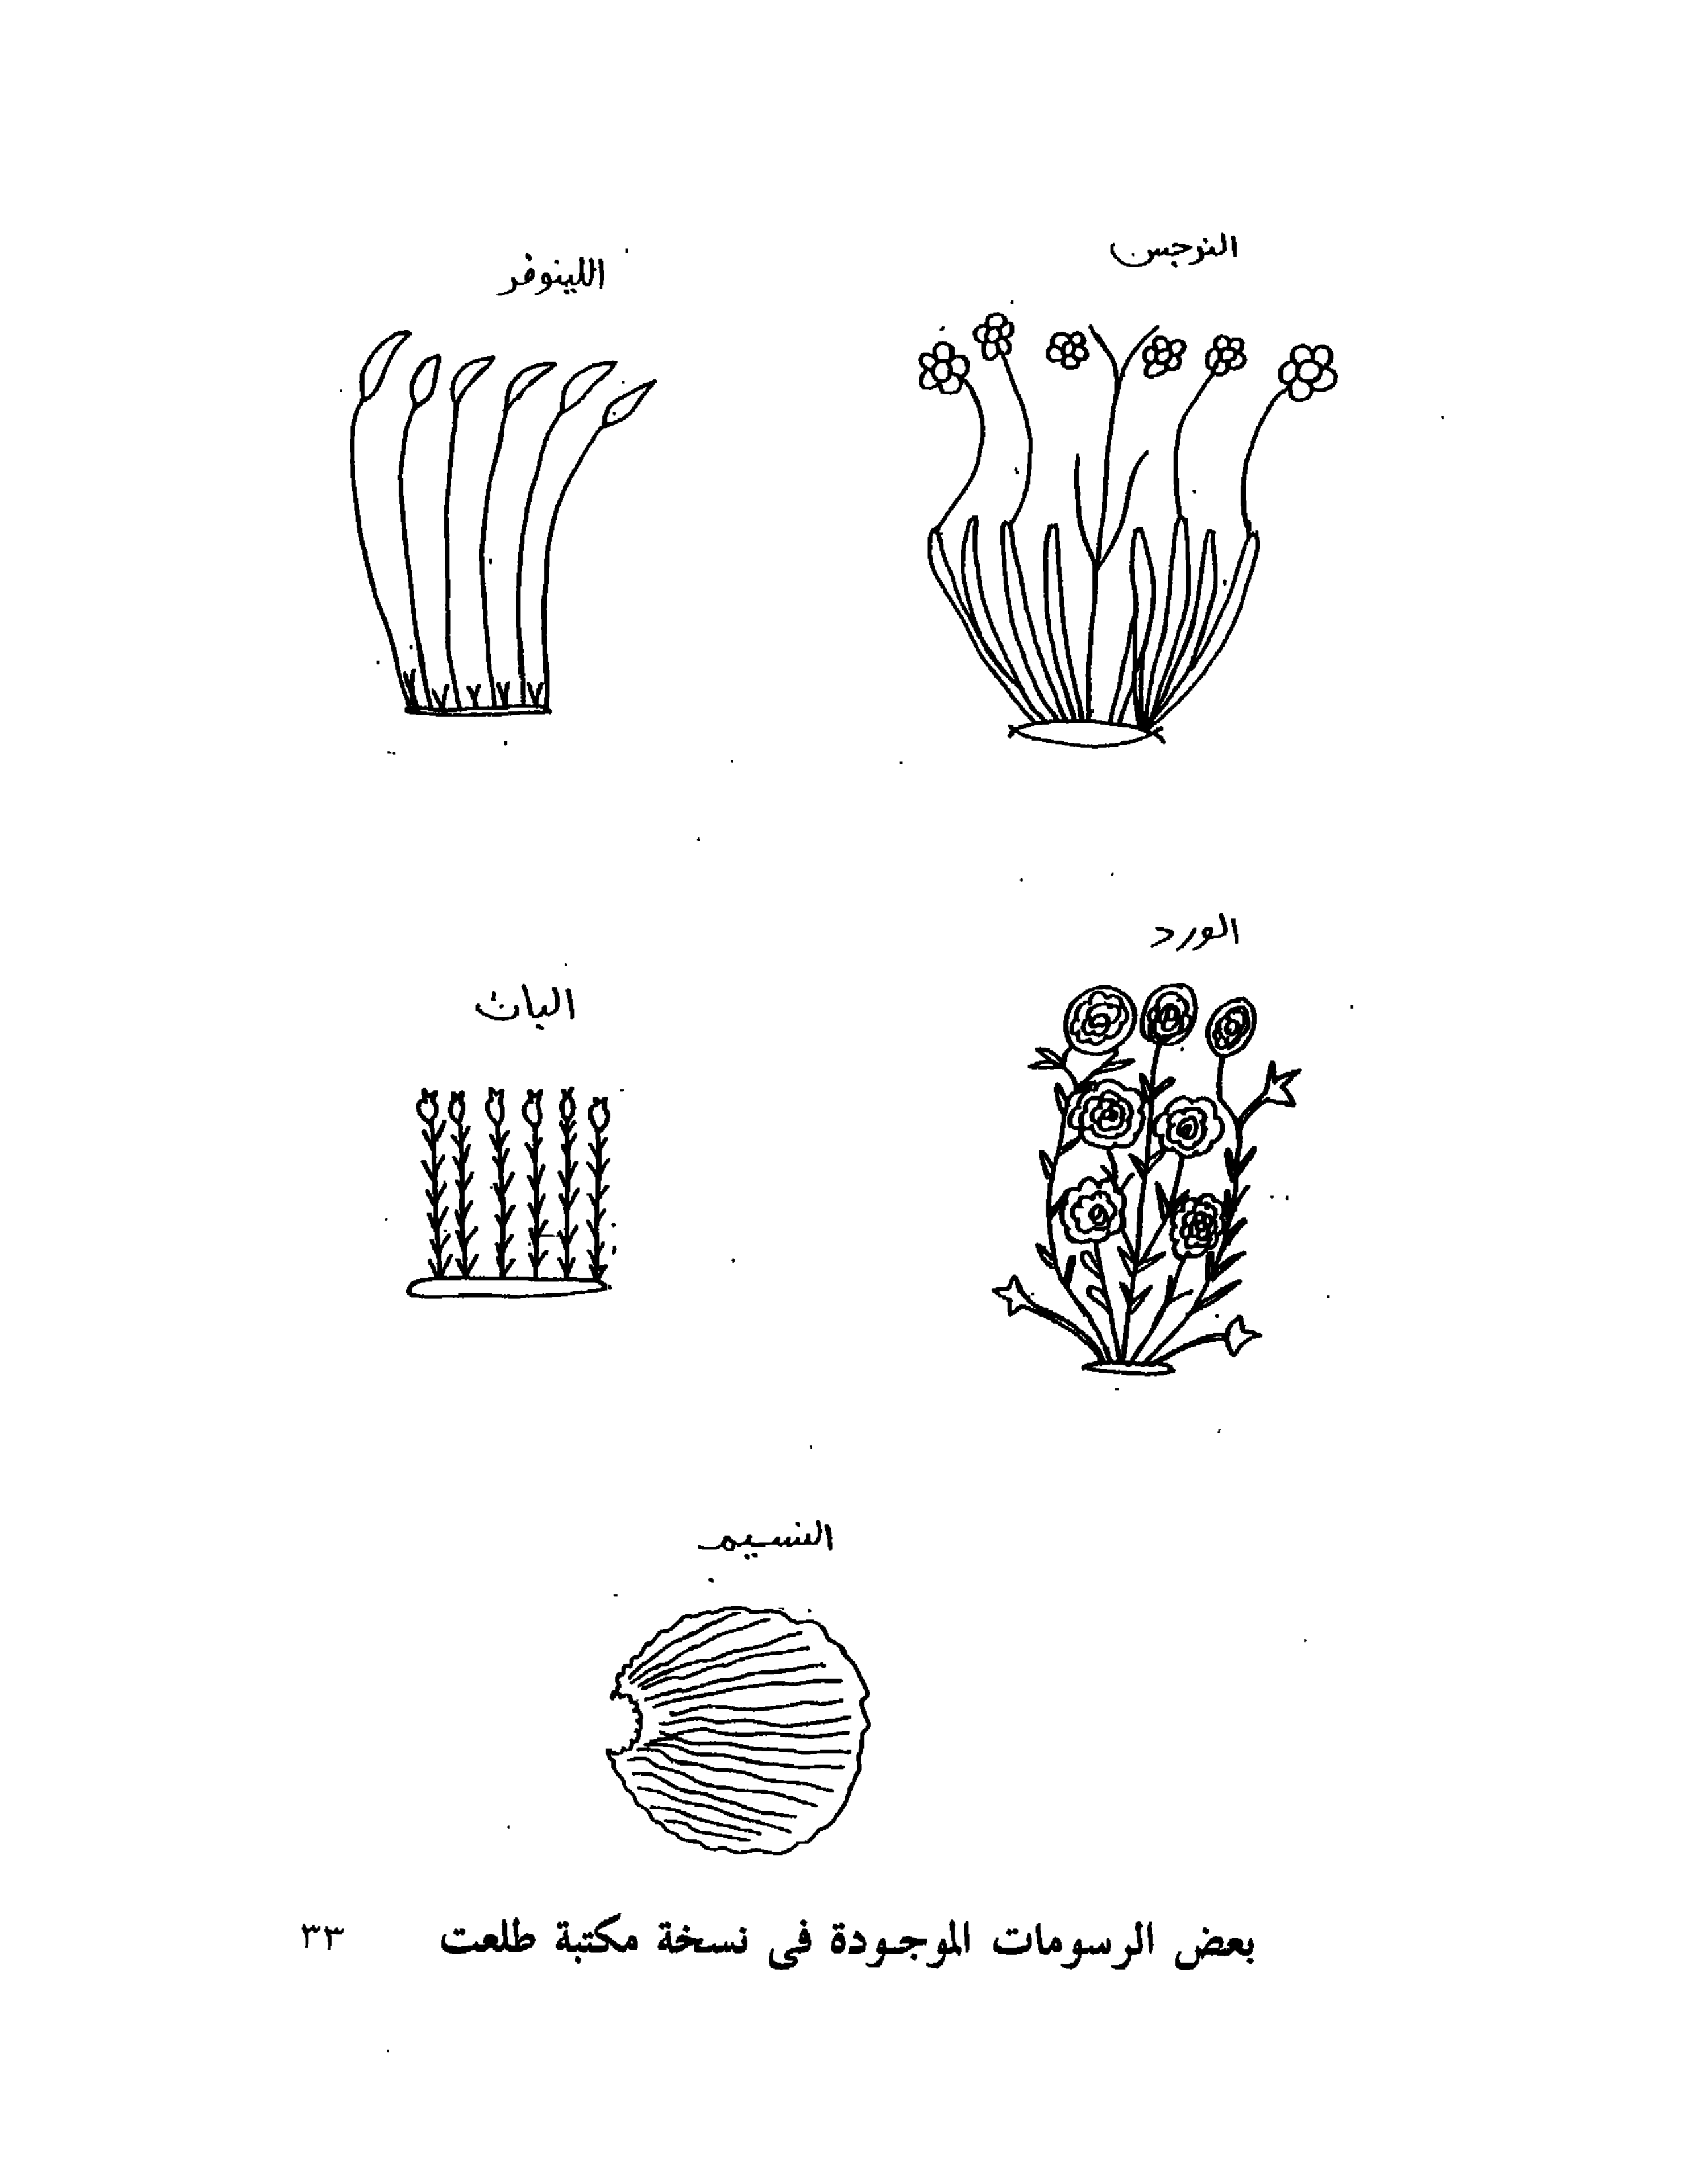 النرجس
اللينوفر
الورد
البان
النسيم
بعض الرسومات الموجودة فى نسخة مكتبة طلعت
٣٣